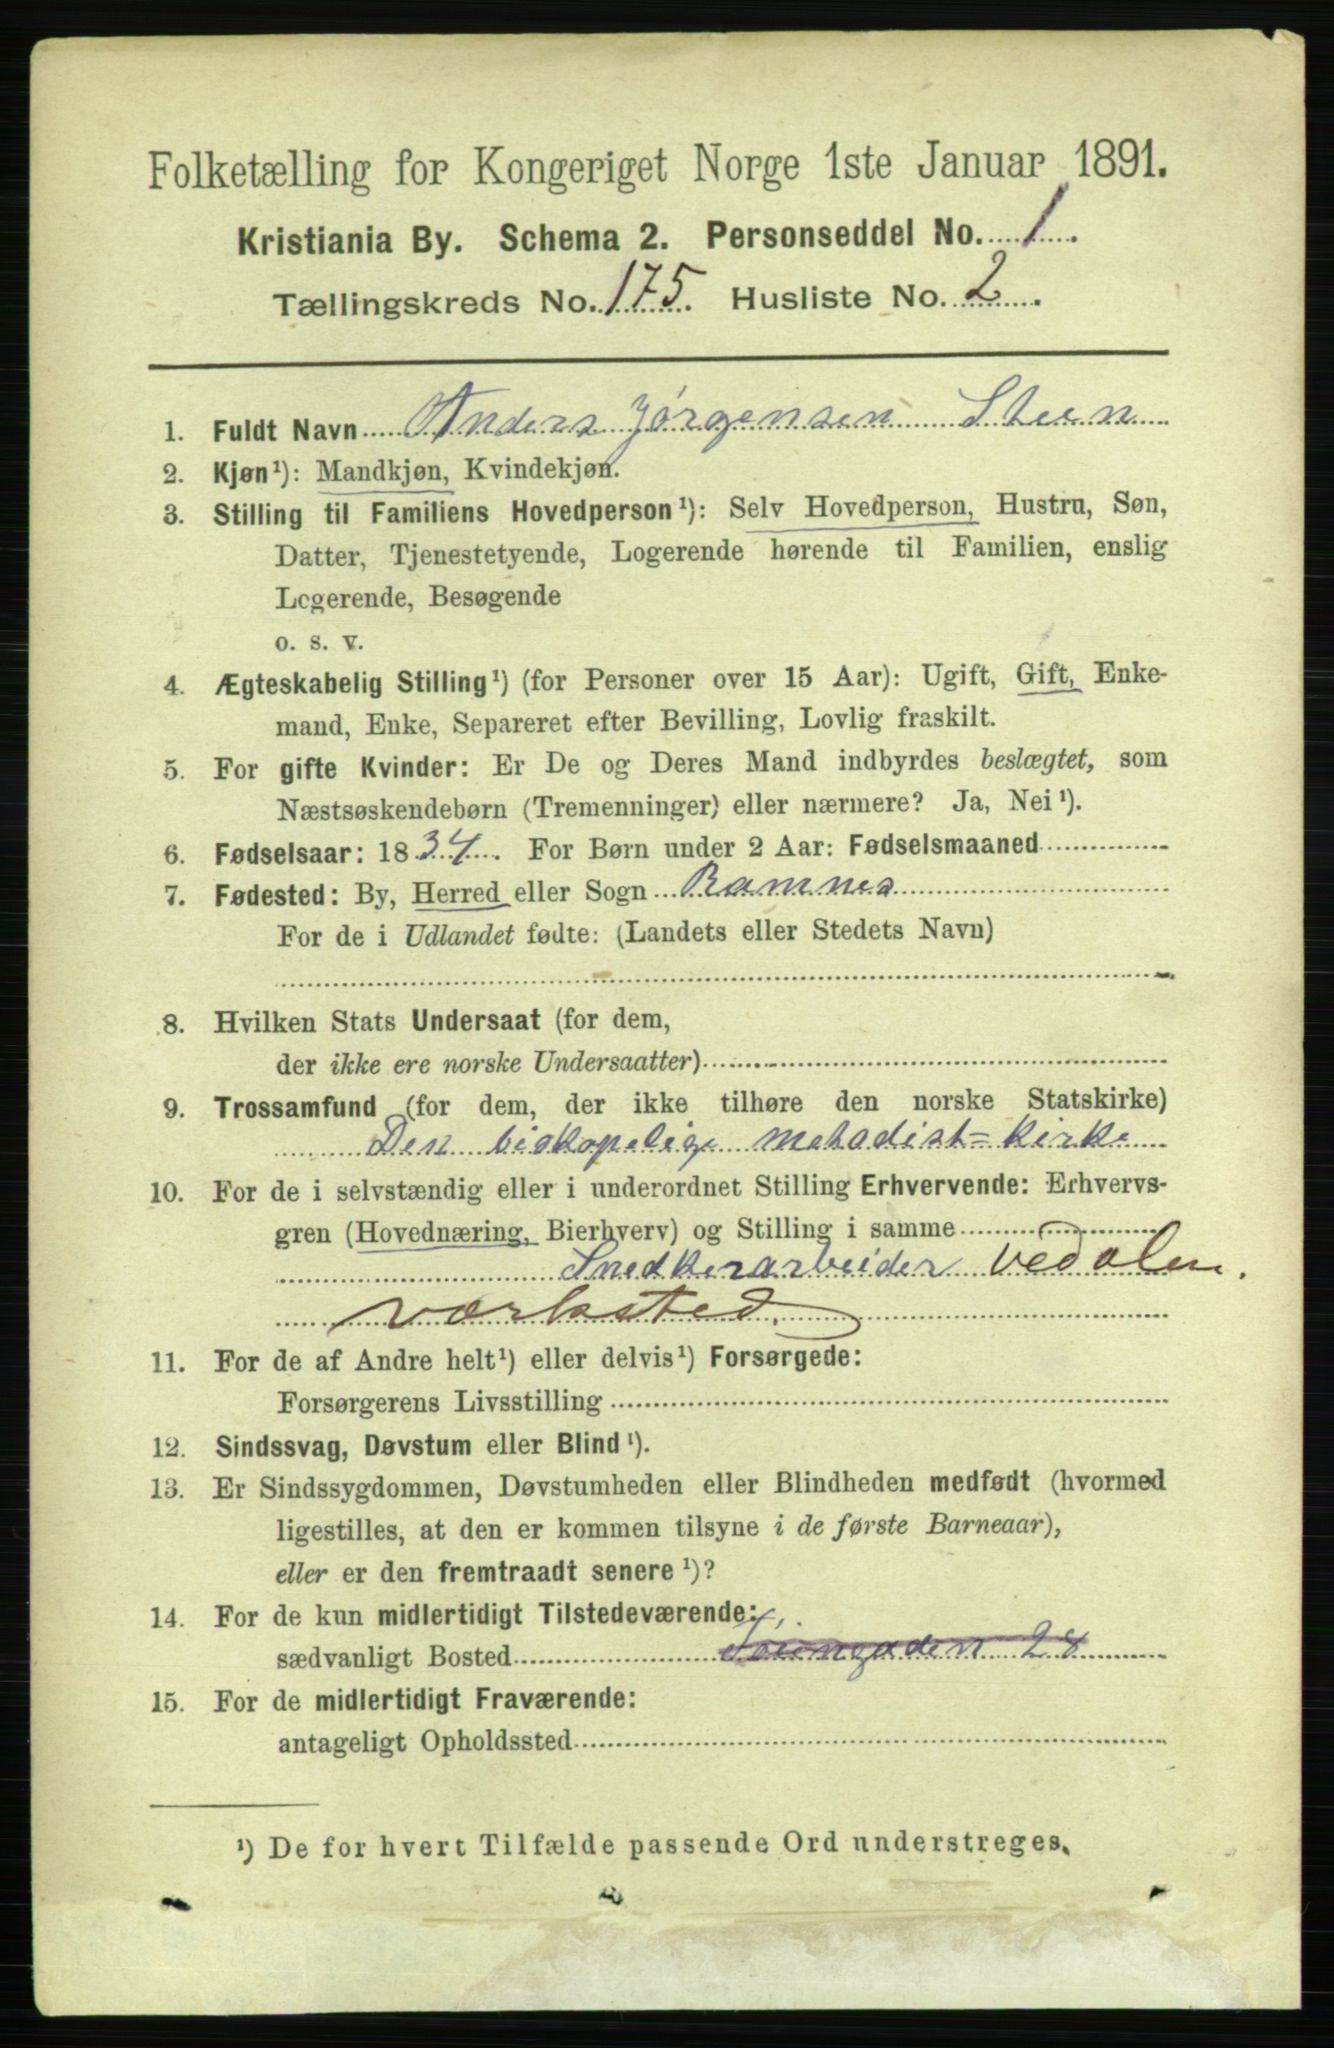 Folketælling for Kongeriget Norge 1ste Januar 1891.
Kristiania By. Schema 2. Personseddel No. 1.
Tællingskreds No. 175. Husliste No. 2.
1. Fuldt Navn Anders Jørgensen Steen
2. Kjøn¹): Mandkjøn, Kvindekjøn.
3. Stilling til Familiens Hovedperson¹): Selv Hovedperson, Hustru, Søn,
Datter, Tjenestetyende, Logerende hørende til Familien, enslig
Logerende, Besøgende
o. s. v.
4. Ægteskabelig Stilling¹) (for Personer over 15 Aar): Ugift, Gift, Enke-
mand, Enke, Separeret efter Bevilling, Lovlig fraskilt.
5. For gifte Kvinder: Er De og Deres Mand indbyrdes beslægtet, som
Næstsøskendebørn (Tremenninger) eller nærmere? Ja, Nei¹).
6. Fødselsaar: 1834. For Børn under 2 Aar: Fødselsmaaned
7. Fødested: By, Herred eller Sogn Ramnes
For de i Udlandet fødte: (Landets eller Stedets Navn)
8. Hvilken Stats Undersaat (for dem,
der ikke ere norske Undersaatter)
9. Trossamfund (for dem, der ikke tilhøre den norske Statskirke)
Den biskopelige metodist=kirke
10. For de i selvstændig eller i underordnet Stilling Erhvervende: Erhvervs-
gren (Hovednæring, Bierhverv) og Stilling i samme
Snedkerarbeider ved
værksted.
11. For de af Andre helt¹) eller delvis¹) Forsørgede:
Forsørgerens Livsstilling
12. Sindssvag, Døvstum eller Blind¹).
13. Er Sindssygdommen, Døvstumheden eller Blindheden medfødt (hvormed
ligestilles, at den er kommen tilsyne i de første Barneaar),
eller er den fremtraadt senere¹)?
14. For de kun midlertidigt Tilstedeværende:
sædvanligt Bosted Tøiengaden 28
15. For de midlertidigt Fraværende:
antageligt Opholdssted
¹) De for hvert Tilfælde passende Ord understreges.